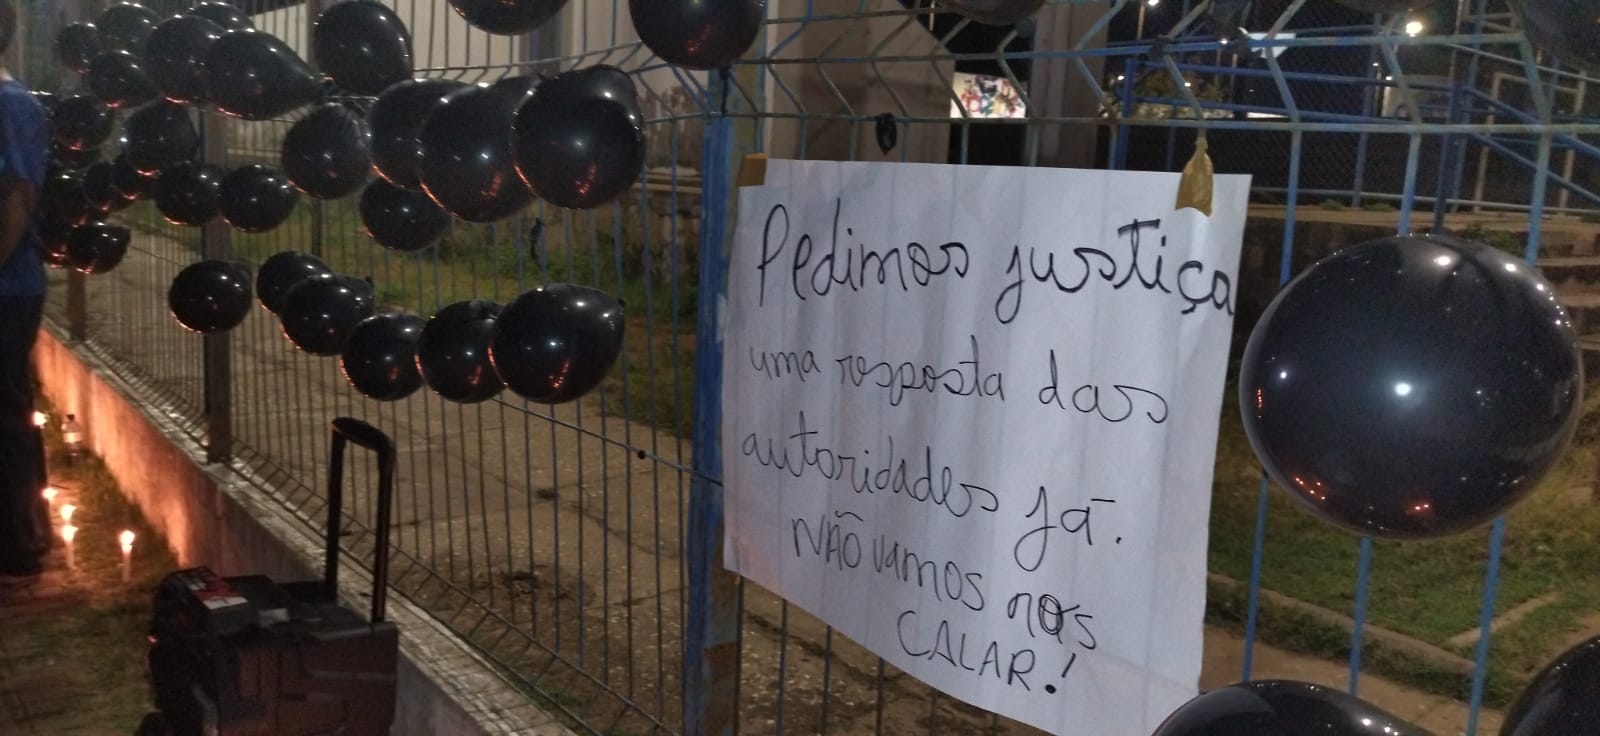 Pedimos justiça
uma resposta das
autoridades já.
NÃO vamos nos
CALAR!